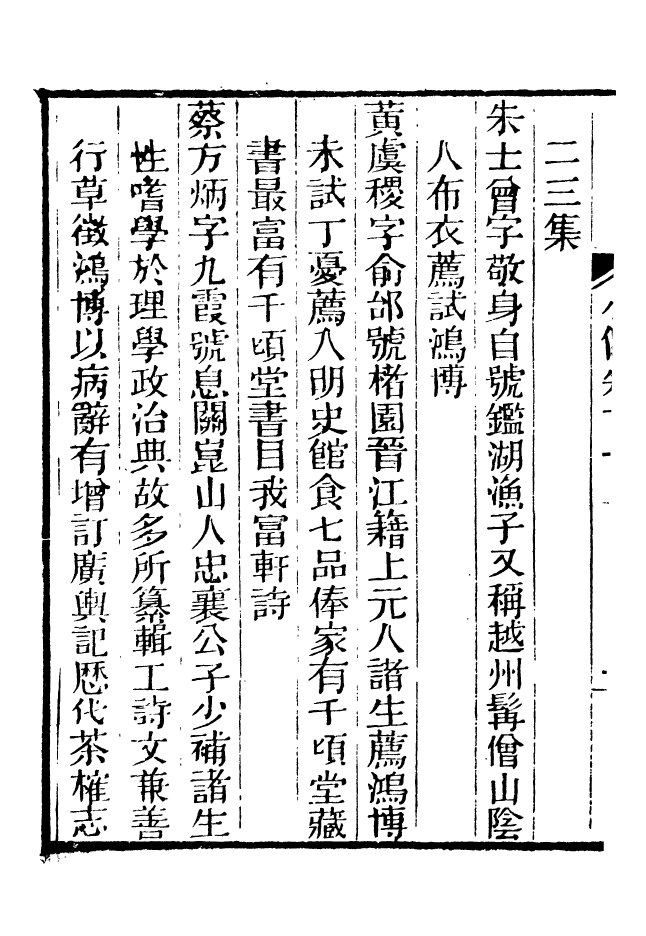 二三集
朱士曾字敬身自號鑑湖漁子又稱越州髯僧山陰
人布衣薦試鴻博
黃虞稷字俞邰號楮園晉江籍上元人諸生薦鴻博
未試丁憂薦入明史館食七品俸家有千頃堂藏
書最富有千頃堂書目我富軒詩
蔡方炳字九霞號息關崑山人忠襄公子少補諸生
性嗜學於理學政治典故多所纂輯工詩文兼善
行草徵鴻博以病辭有增訂廣輿記歷代茶榷志